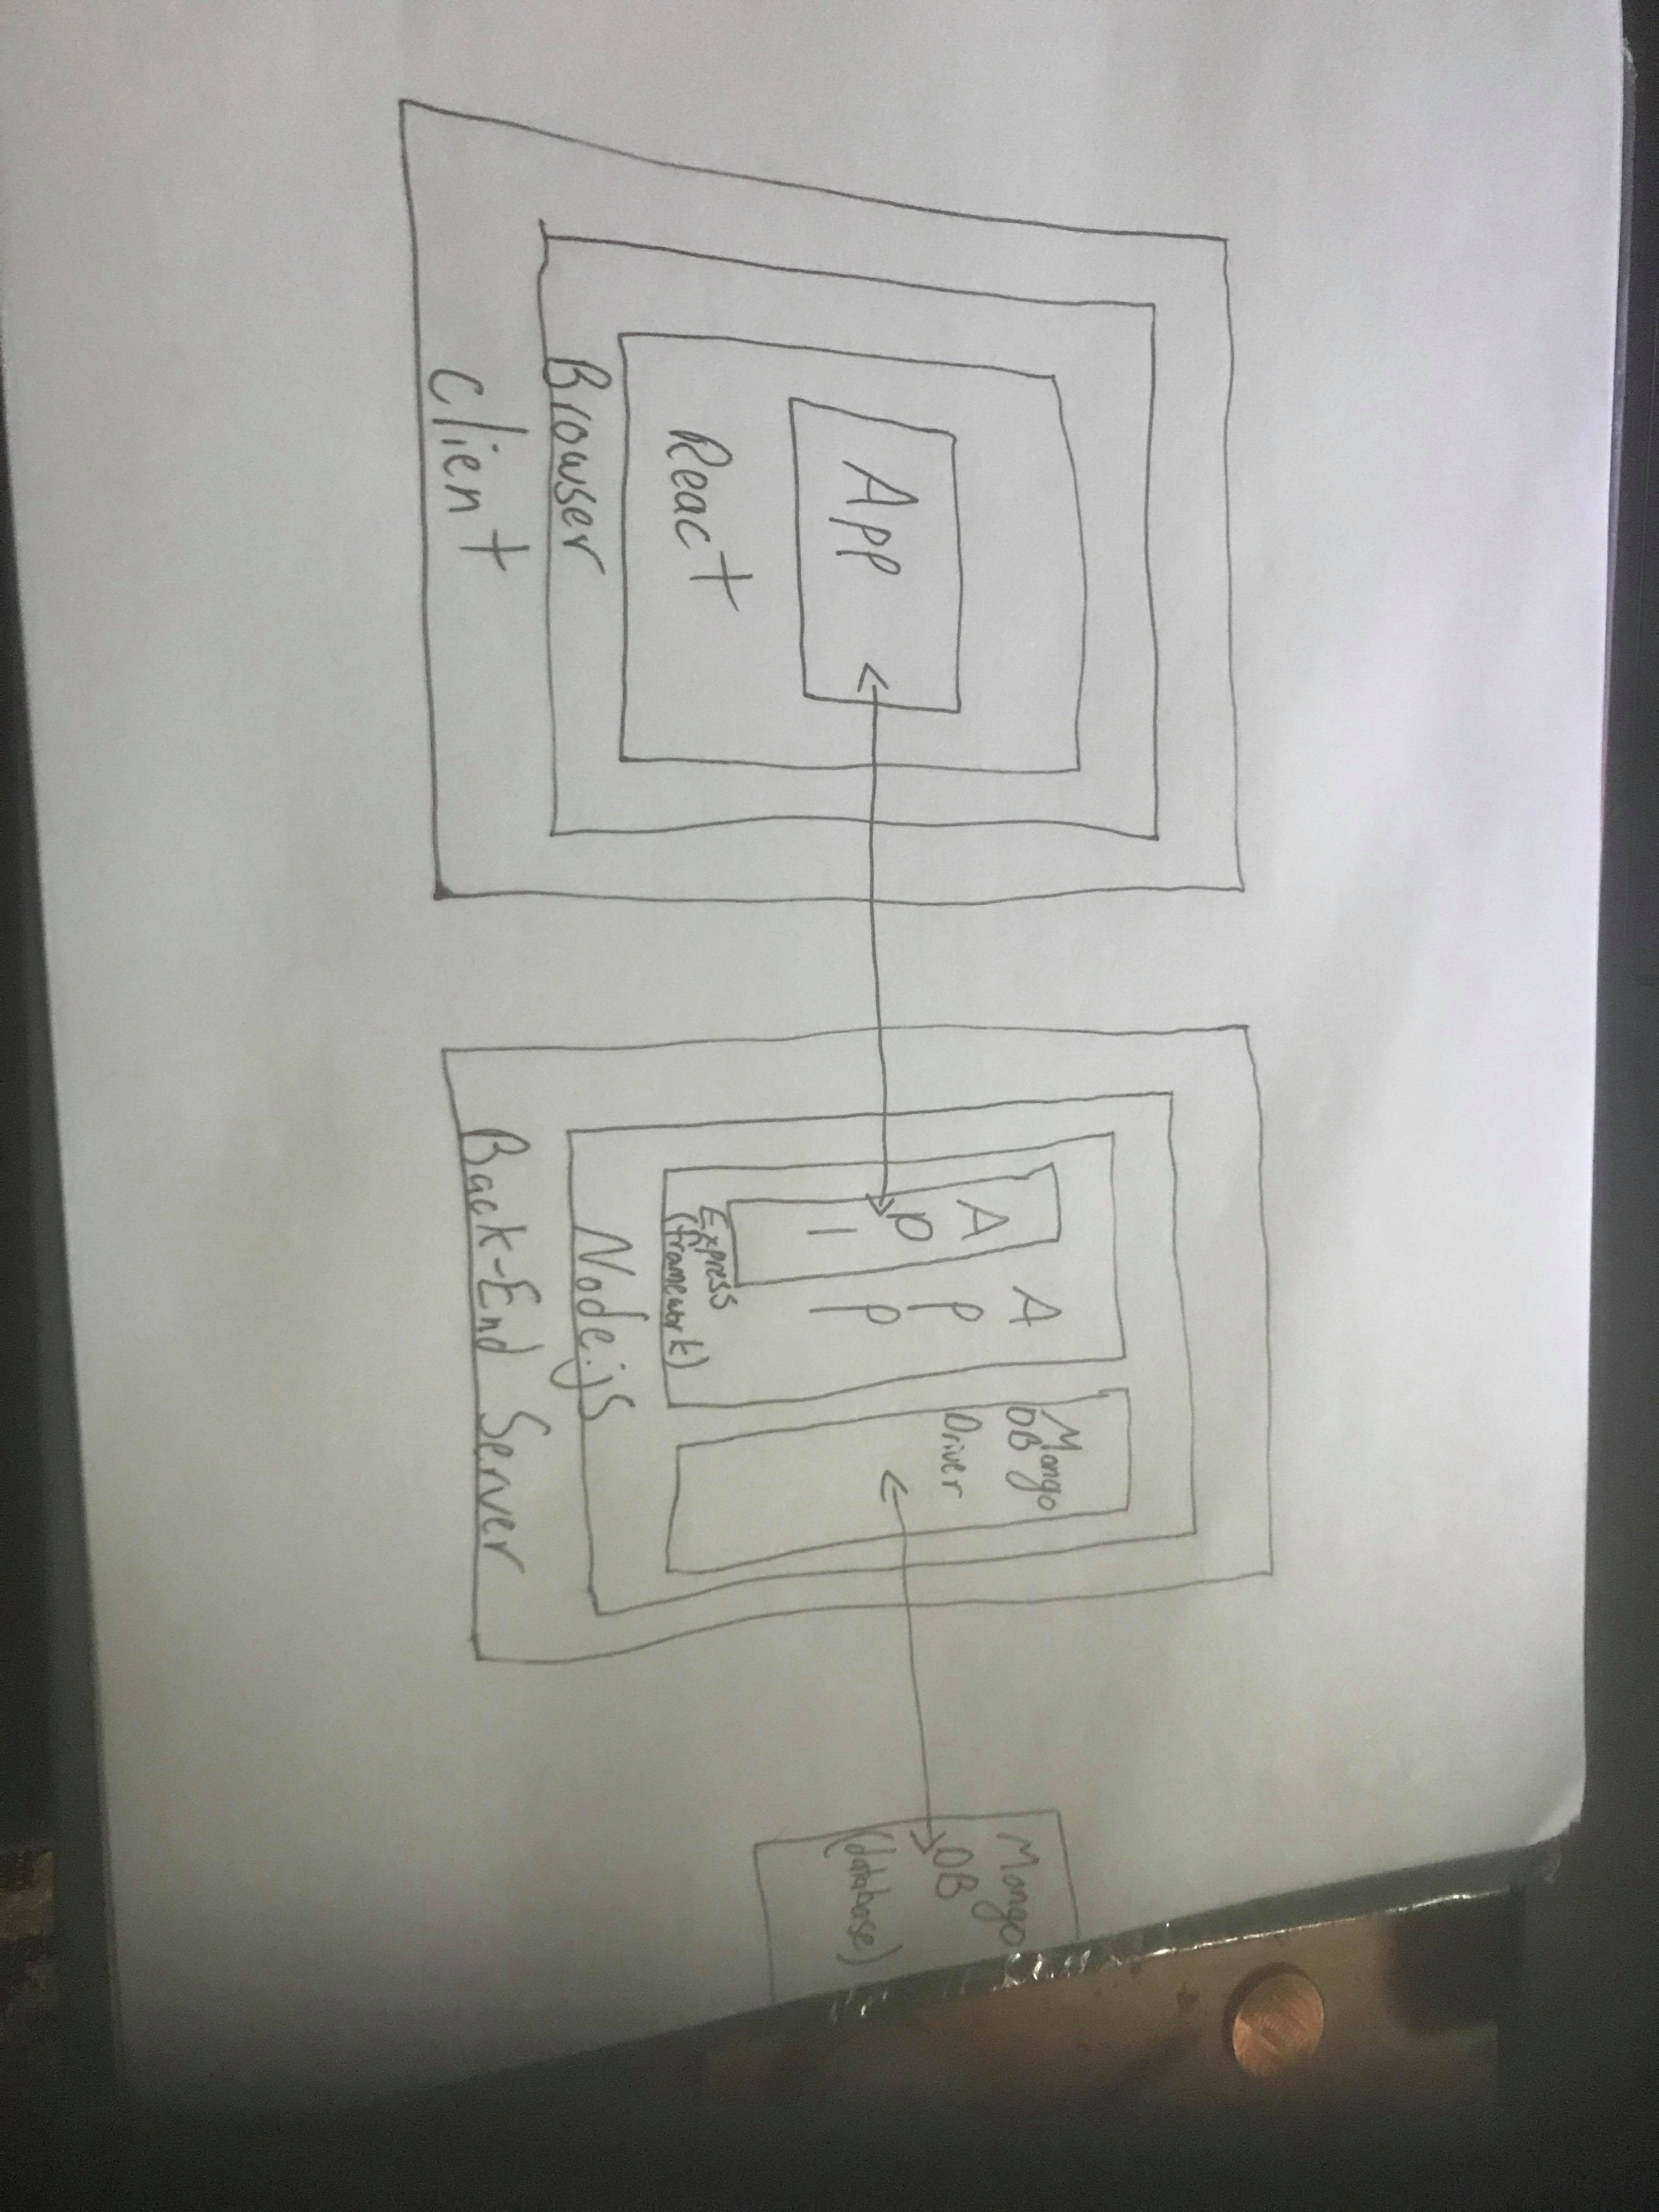 App
React
Browser
Client
A
P
I
A
P
P
Express
(framework)
Mongo
DB
Driver
Node.js
Back-End Server
Mongo
DB
(database)